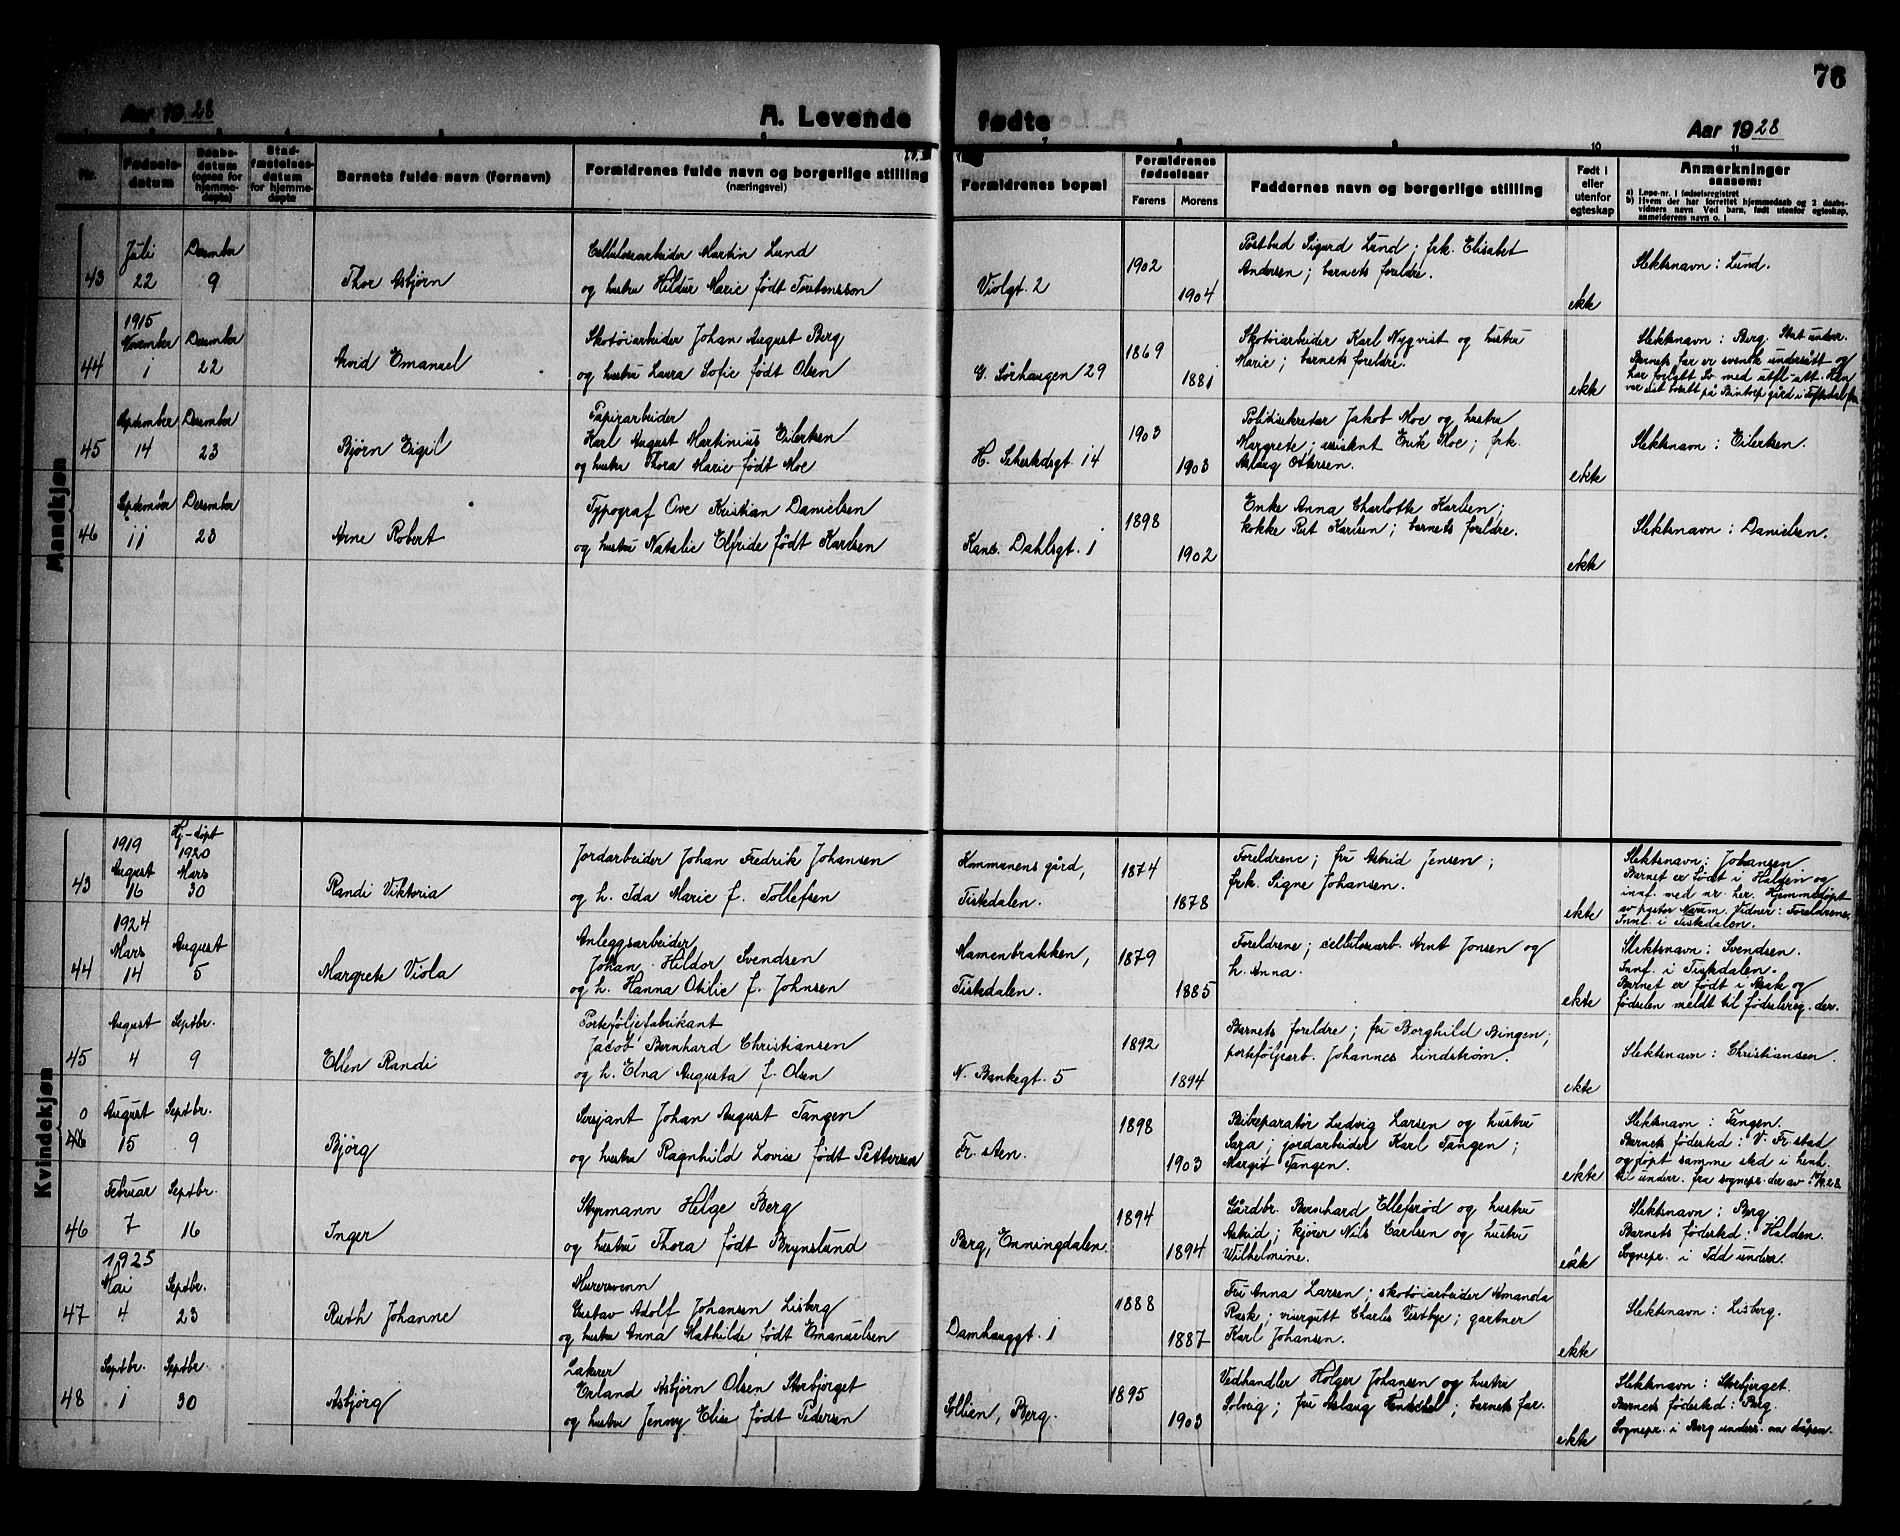 76
Aar 1928
A. Levende fødte
Aar 1928
Nr.
Fødsels-datum
Daabs-datum (ogsaa for hjemme-døpte)
Stad-fæstelses-datum for hjemme-døpte
Barnets fulde navn (fornavn)
Forældrenes fulde navn og borgerlige stilling
(næringsvei)
Forældrenes bopæl
Forældrenes fødselsaar
Farens
Morens
Faddernes navn og borgerlige stilling
Født i eller utenfor egteskap
Anmerkninger
saasom:
a) Løpe-nr. i fødselsregistret
b) Hvem der har forrettet hjemmedaab og 2 daabs-
vidners navn Ved barn, født utenfor egteskap,
anmelderens navn o. l
Mandkjøn
43
Juli
22
Desember
9
Thor Asbjørn
Cellulosearbeider Martin Lund
og hustru Hildur Marie født Torstensson
Violgt. 2
1902
1904
Postbud Sigurd Lund; frk. Elisabet
Andersen; barnets foreldre.
ekte
Slektsnavn: Lund.
44
1915
November
1
Desember
22
Arvid Emanuel
Skotøiarbeider Johan August Berg
og hustru Laura Sofie født Olsen
G. Sørhaugen 29
1869
1881
Skotøiarbeider Karl Nyqvist og hustru
Marie; barnets foreldre.
ekte
Slektsnavn: Berg.
Barnets far er svensk undersått og
har forlatt Sv. med utfl.-att.
45
September
14
Desember
23
Bjørn Eigil
Papirarbeider
Karl August Martinius Eilertsen
og hustru Thora Marie født Moe
H. Schestedsgt. 14
1903
1903
Politisekretær Jakob Moe og hustru
Margrete; assistent Enik Moe; frk.
Aslaug Ottersen.
ekte
Slektsnavn: Eilertsen.
46
September
11
Desember
23
Arne Robert
Typograf Ove Kristian Danielsen
og hustru Natalie Elfride født Karlsen
Kans. Dahlsgt. 1
1898
1902
Enke Anna Charlotte Karlsen;
kokke Rut Karlsen; barnets foreldre.
ekte
Slektsnavn: Danielsen.
Kvindekjøn
43
1919
August
16
Hj-døpt
1920
Mars
30
Randi Viktoria
Jordarbeider Johan Fredrik Johansen
og h. Ida Marie f. Tollefsen
Kommunens gård,
Tistedalen.
1874
1878
Foreldrene; fru Astrid Jensen;
frk. Signe Johansen.
ekte
Slektsnavn: Johansen
Barnet er født i Halden og
innf. med nr. her. Hjemmedøpt
av pastor Narum. Vidner: Foreldrene.
Innf. i Tistedalen.
44
1924
Mars
14
August
5
Margrete Viola
Anleggsarbeider
Johan Hildor Svendsen
og h. Hanna Otilie f. Johnsen
Mamenbrakken,
Tistedalen.
1879
1885
Foreldrene; cellulosearb. Arnt Jonsen og
h. Anna.
ekte
Slektsnavn: Svendsen.
Innf. i Tistedalen.
Barnet er født i Aak og
fødselen meldt til fødselsreg. der.
45
August
4
Septbr.
9
Ellen Randi
Porteføljefabrikant
Jacob Bernhard Christiansen
og h. Elna Augusta f. Olsen
N. Bankegt. 5
1892
1894
Barnets foreldre; fru Borghild Bingen;
porteføljearb. Johannes Lindstrøm.
ekte
Slektsnavn: Christiansen.
0
46
August
15
Septbr.
9
Bjørg
Sersjant Johan August Tangen
og hustru Ragnhild Lovise født Pettersen
Fr. sten.
1898
1903
Bilreparatør Ludvig Larsen og hustru
Sara; jordarbeider Karl Tangen;
Margit Tangen.
ekte
Slektsnavn: Tangen.
Barnets fødested: V. Fr. stad
og døpt samme sted i henh.
til underr. fra sognepr. der av
46
Februar
7
Septbr.
16
Inger
Styrmann Helge Berg
og hustru Thora født Brynslund
Berg, Enningdalen.
1894
1894
Gårdbr. Bernhard Ellefsrød og hustru
Astrid; kjører Nils Carlsen og hustru
Wilhelmine.
ekte
Slektsnavn: Berg
Barnets fødested: Halden.
Sognepr. i Idd underr.
47
1925
Mai
4
Septbr.
23
Ruth Johanne
Murersvenn
Gustav Adolf Johansen Lisberg
og hustru Anna Mathilde født Emanuelsen
Damhauggt. 1
1888
1887
Fru Anna Larsen; skotøiarbeider Amanda
Rask; visergutt Charles Vestbye; gartner
Karl Johansen.
ekte
Slektsnavn: Lisberg.
48
Septbr.
1
Septbr.
30
Asbjørg
Lakerer
Erland Asbjørn Olsen Storbjerget
og hustru Jenny Elise født Pedersen
Sollien, Berg.
1895
1903
Vedhandler Holger Johansen og hustru
Solveig; fru Aslaug; barnets far.
ekte
Slektsnavn: Storbjerget.
Barnets fødested: Berg.
Sognepr. i Berg underr. om dåpen.